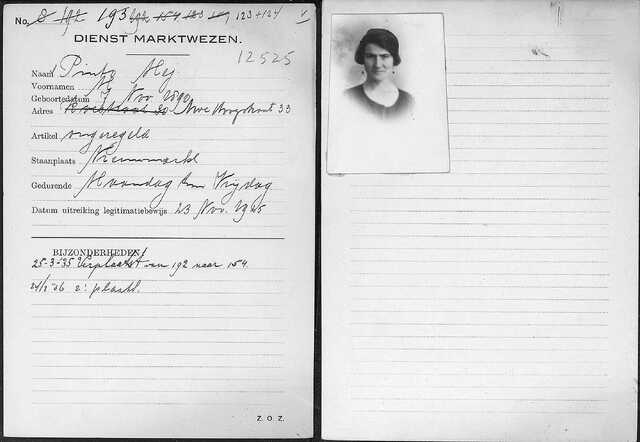 No. 193 154 123 + 124
DIENST MARKTWEZEN.
12525
Naam Pinto Mej
Voornamen
Geboortedatum 7 Nov. 1890
Adres 33
Artikel ongeregeld
Staanplaats Nieuwmarkt
Gedurende Maandag t/m Vrijdag
Datum uitreiking legitimatiebewijs 23 Nov.
BIJZONDERHEDEN
25-3-35 Verplaatst van 192 naar 154.
2e plaats.
Z. O. Z.